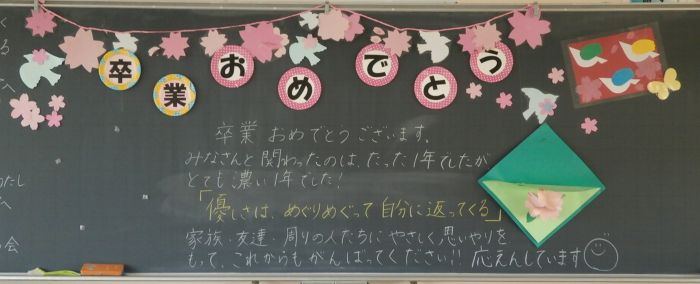 卒業おめでとう
卒業 おめでとうございます。
みなさんと関わったのは、たった1年でしたが
とても濃い1年でした!
「優しさは、めぐりめぐって自分に返ってくる」
家族・友達・周りの人たちにやさしく思いやりを
もって、これからもがんばってください!! 応えんしています